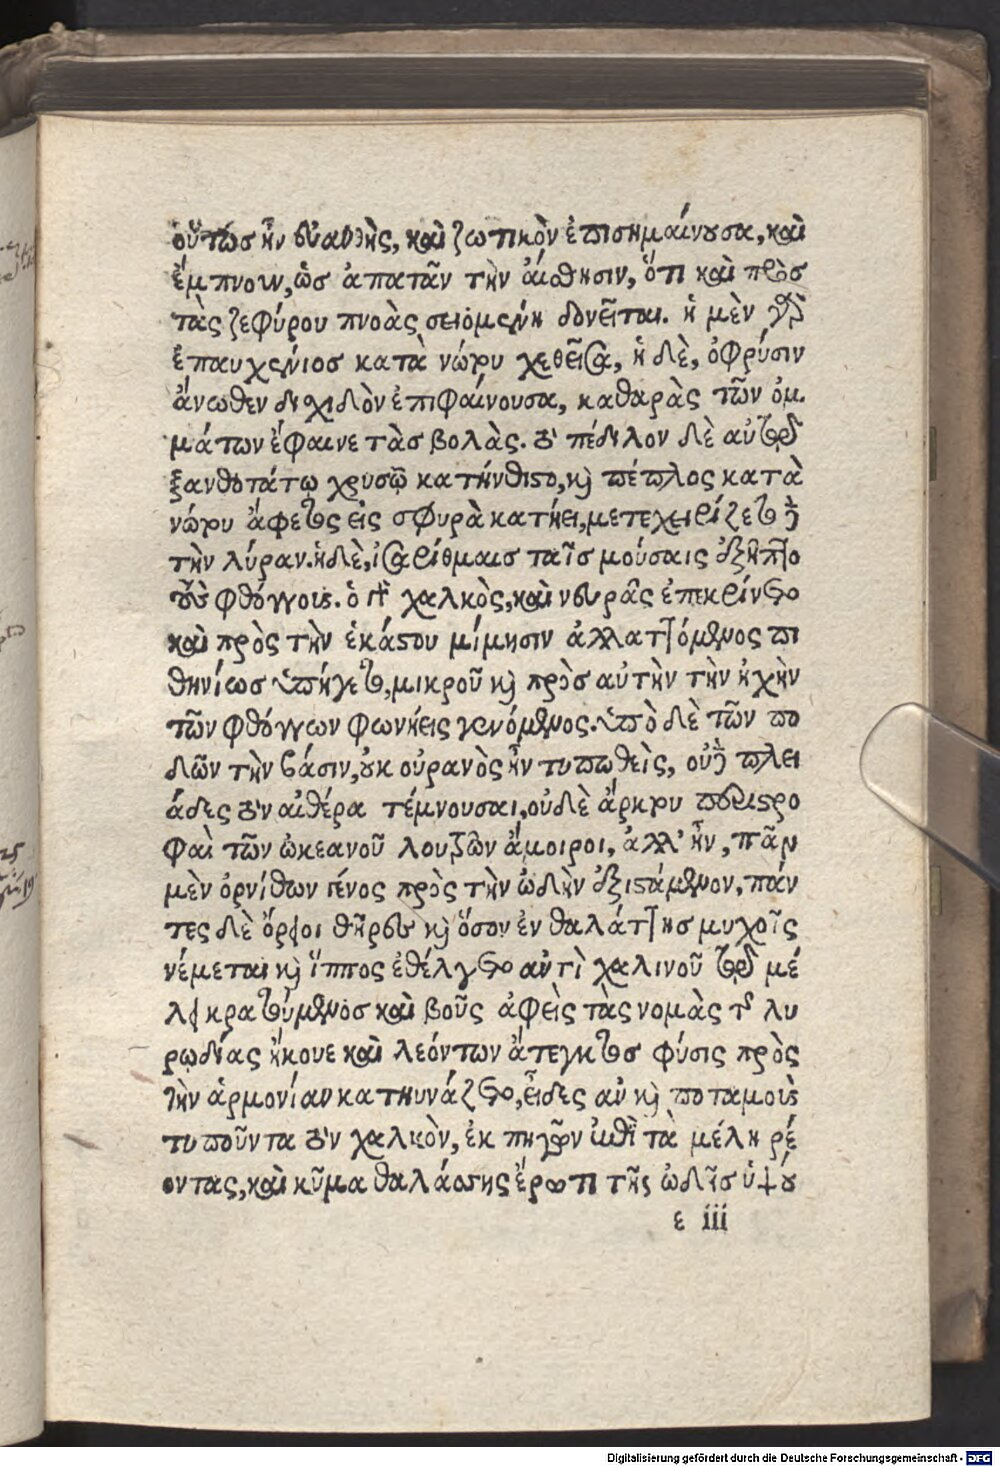 οὕτως ἦν εὐανθὴς, καὶ ζωτικὸν ἐπισημαίνουσα, καὶ
ἔμπνουν, ὡς ἀπατᾶν τὴν αἴσθησιν, ὅτι καὶ πρὸς
τὰς ζεφύρου πνοὰς σειομένη δονεῖται. ἡ μὲν γὰρ
ἐπαυχένιος κατὰ νώτου χεθεῖσα, ἡ δὲ, ὀφρύσιν
ἄνωθεν διχιδὸν ἐπιφαίνουσα, καθαρὰς τῶν ὀμ.
μάτων ἔφαινε τὰς βολὰς. τὸ πέδιλον δὲ αὐτῷ
ξανθοτάτῳ χρυσῷ κατήνθιστο, καὶ πέπλος κατὰ
νώτου ἄφετος εἰς σφυρὰ κατῄει, μετεχειρίζετο δὲ
τὴν λύραν. ἡ δὲ, ἰσαρίθμοις ταῖς μούσαις ἐξήπτο
τοὺς φθόγγους. ὁ γὰρ χαλκὸς, καὶ νευρὰς ἐπεκρίνετο
καὶ πρὸς τὴν ἑκάστου μίμησιν ἀλλαττόμενος πι
θηνίως ὑπήγετο, μικροῦ καὶ πρὸς αὐτὴν τὴν ἠχὴν
τῶν φθόγγων φωνήεις γενόμενος. ὑπὸ δὲ τῶν πο
δῶν τὴν βάσιν, οὐκ οὐρανὸς ἦν τυπωθεὶς, οὐδὲ πλει
άδες τὸν αἰθέρα τέμνουσαι, οὐδὲ ἄρκτου περιστρο
φαὶ τῶν ὠκεανοῦ λουτρῶν ἄμοιροι, ἀλλ' ἦν, πᾶν
μὲν ὀρνίθων γένος πρὸς τὴν ᾠδὴν ἐξιστάμενον, πάν
τες δὲ ὄρειοι θῆρες καὶ ὅσον ἐν θαλάττης μυχοῖς
νέμεται καὶ ἵππος ἐθέλγετο ἀντὶ χαλινοῦ τῷ μέ
λει κρατούμενος καὶ βοῦς ἀφεὶς τὰς νομὰς τῆς λυ
ρῳδίας ἤκουε καὶ λεόντων ἄτεγκτος φύσις πρὸς
τὴν ἁρμονίαν κατηυνάζετο, εἶδες ἂν καὶ ποταμοὺς
τυποῦντα τὸν χαλκὸν, ἐκ πηγῶν ἐπὶ τὰ μέλη ῥέ
οντας, καὶ κῦμα θαλάσσης ἔρωτι τῆς ᾠδῆς ὑψού
ε iii
Digitalisierung gefördert durch die Deutsche Forschungsgemeinschaft - DFG